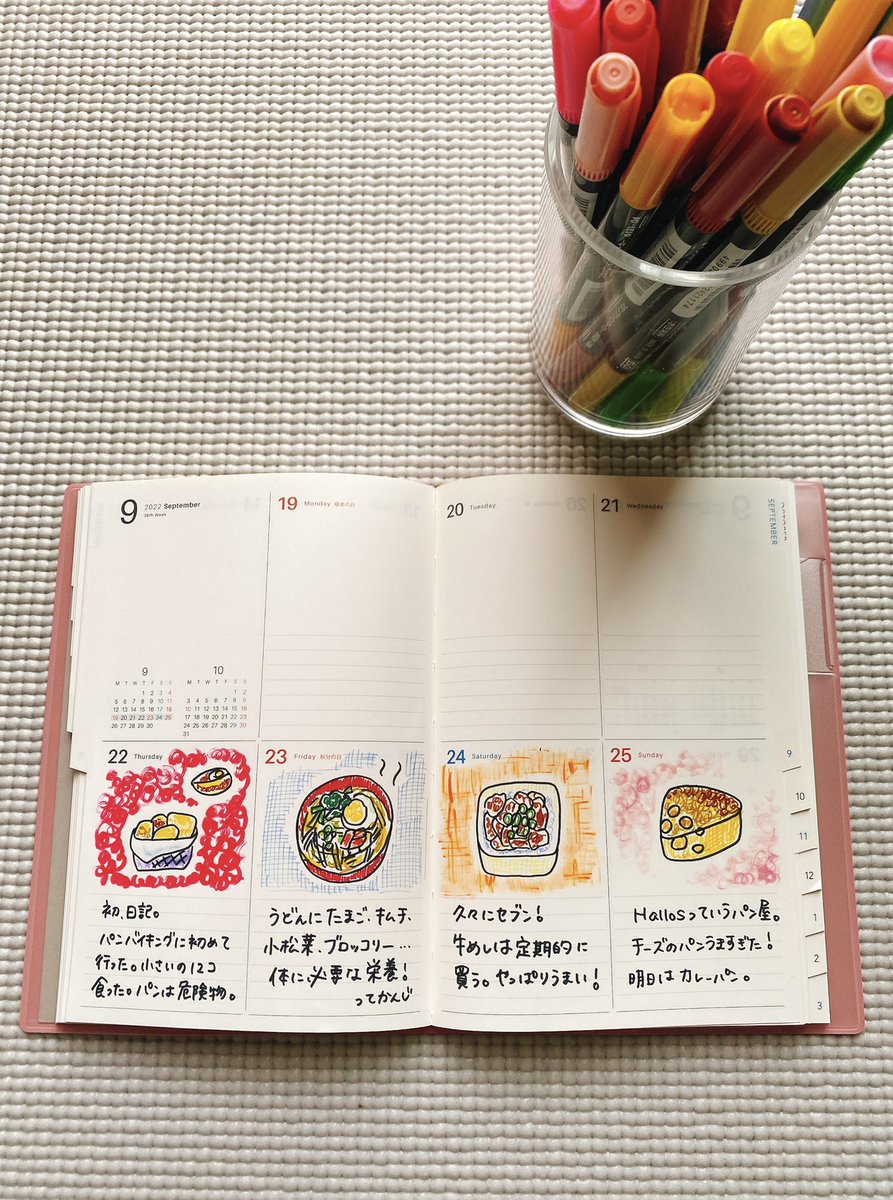 9 2022 September
38th Week
19 Monday 敬老の日
20 Tuesday
21 Wednesday
SEPTEMBER
9
M T W T F S S
1 2 3 4
5 6 7 8 9 10 11
12 13 14 15 16 17 18
19 20 21 22 23 24 25
26 27 28 29 30
10
M T W T F S S
1 2
3 4 5 6 7 8 9
10 11 12 13 14 15 16
17 18 19 20 21 22 23
24 25 26 27 28 29 30
31
22 Thursday
初、日記。
パンバイキングに初めて
行った。小さいの12コ
食った。パンは危険物。
23 Friday 秋分の日
うどんにたまご、キムチ、
小松菜、ブロッコリー…
体に必要な栄養!
ってかんじ
24 Saturday
久々にセブン!
牛めしは定期的に
買う。やっぱりうまい!
25 Sunday
Hallosっていうパン屋。
チーズのパンうますぎた!
明日はカレーパン。
9
10
11
12
1
2
3